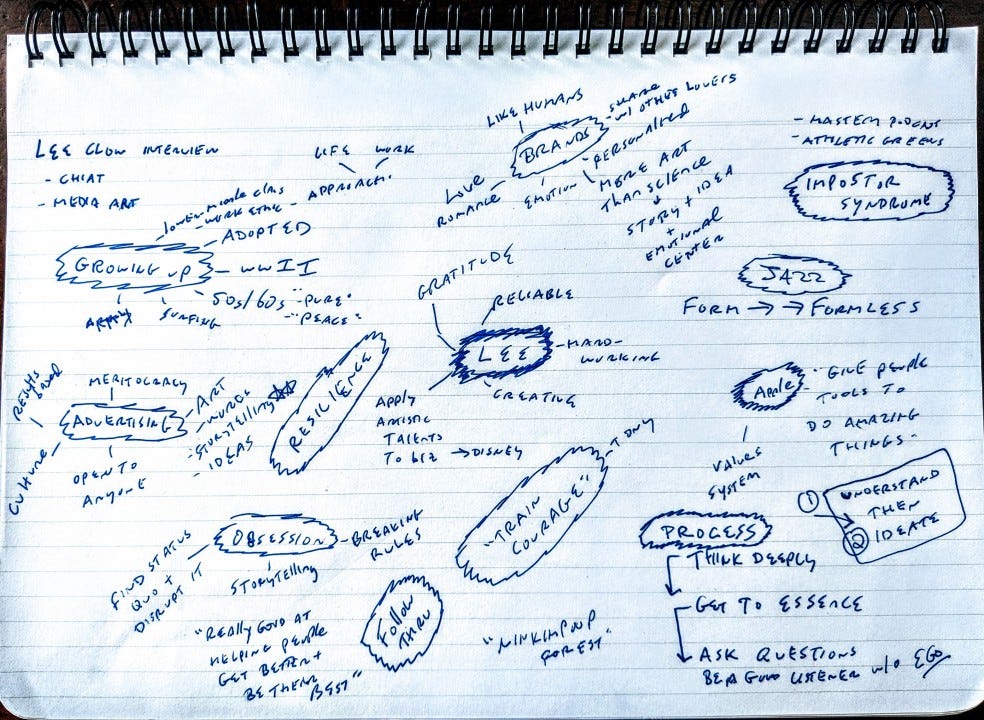 LEE CLOW INTERVIEW
- CHIAT
- MEDIA ART
LIFE WORK
APPROACH
LOWER-MIDDLE CLASS
- WORK ETHIC
GROWING UP
- ADOPTED
- WWII
50s/60s - "PURE"
- "PEACE"
SURFING
LIKE HUMANS
BRANDS
- SHARE
W/ OTHER LOVERS
LOVE
ROMANCE
EMOTION
PERSONALITY
MORE ART
THAN SCIENCE
STORY + IDEA
+
EMOTIONAL
CENTER
- ATHLETIC GREENS
IMPOSTOR
SYNDROME
JAZZ
FORM → → FORMLESS
GRATITUDE
RELIABLE
LEE
- HARD-
WORKING
CREATIVE
APPLY
ARTISTIC
TALENTS
TO BIZ → DISNEY
RESILIENCE
MERITOCRACY
RESULTS
BASED
ADVERTISING
- ART
- WORDS
- STORYTELLING
- IDEAS
CULTURE
OPEN TO
ANYONE
APPLE
- GIVE PEOPLE
TOOLS TO
DO AMAZING
THINGS -
VALUES
SYSTEM
OBSESSION
- BREAKING
RULES
FIND STATUS
QUO +
DISRUPT IT
STORYTELLING
"TRAIN
COURAGE"
- TONY
PROCESS
THINK DEEPLY
GET TO ESSENCE
ASK QUESTIONS
BE A GOOD LISTENER W/O EGO
1 UNDERSTAND
THEN
2 IDEATE
"REALLY GOOD AT
HELPING PEOPLE
GET BETTER +
BE THEIR
BEST"
FOLLOW
THRU